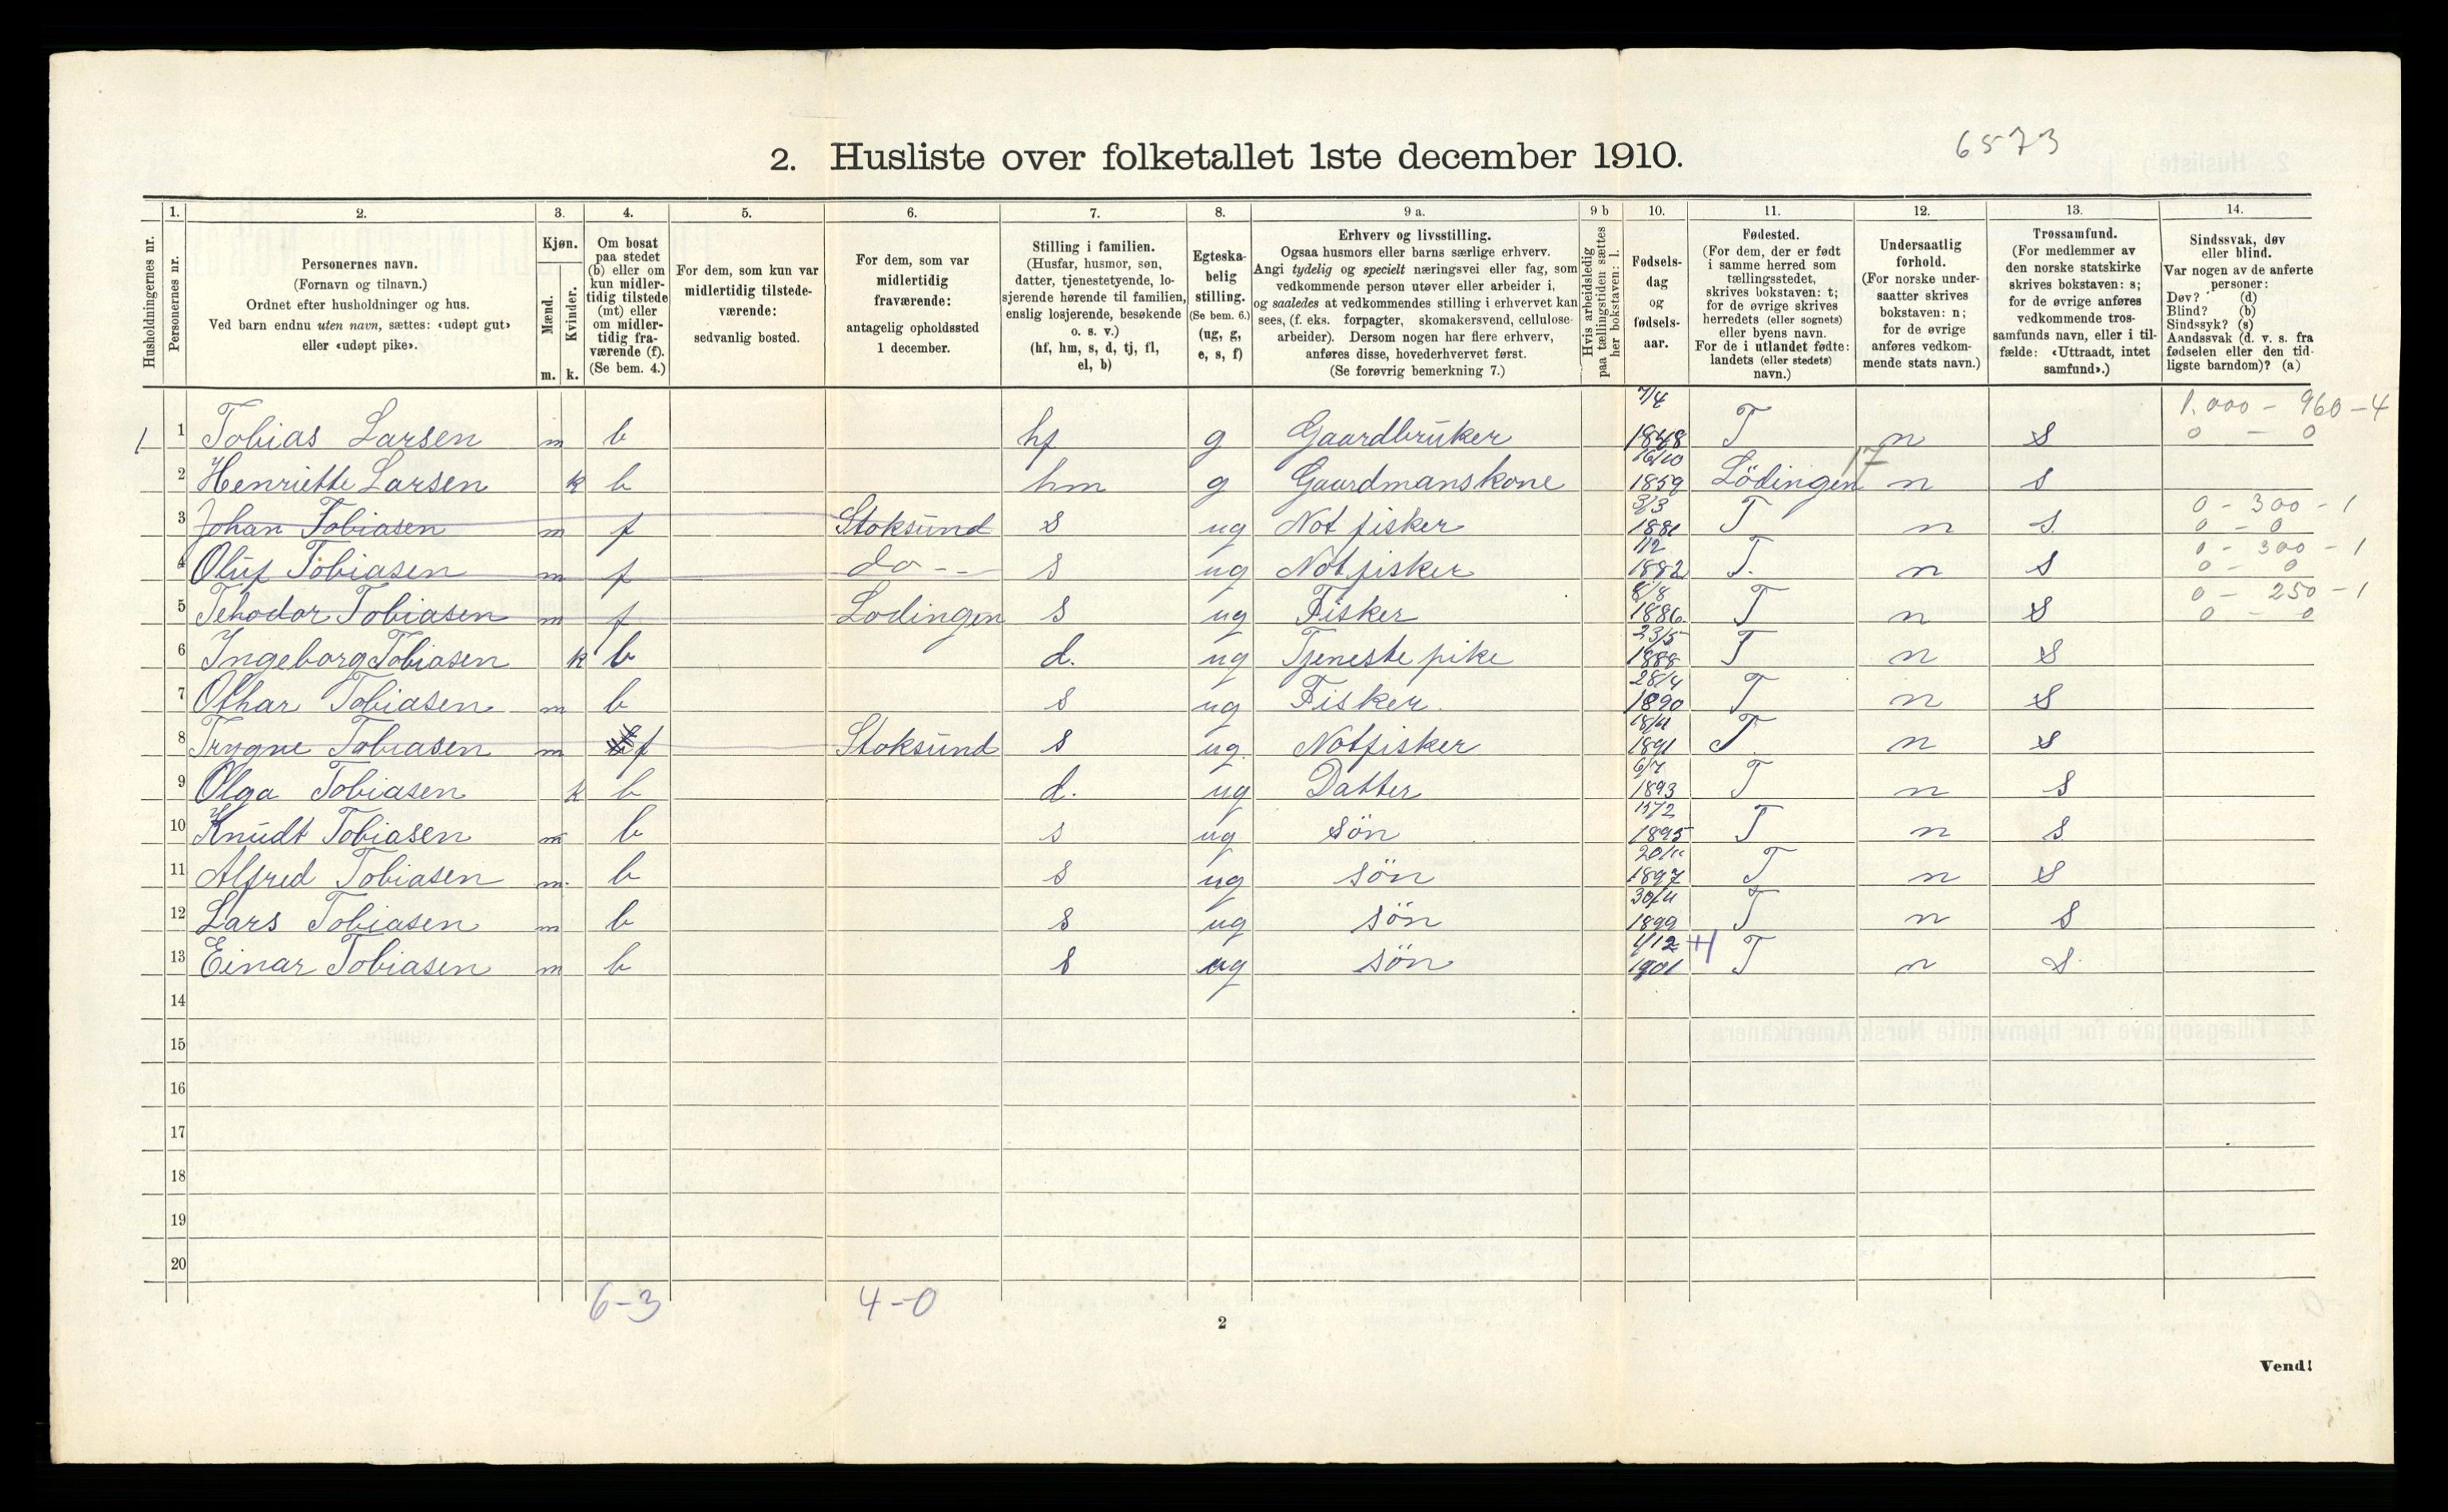 6573
2. Husliste over folketallet 1ste december 1910.
Husholdningernes nr.
1. Personernes nr.
2. Personernes navn. (Fornavn og tilnavn.) Ordnet efter husholdninger og hus. Ved barn endnu uten navn, sættes: «udøpt gut» eller «udøpt pike».
3. Kjøn. Mænd. m. Kvinder. k.
4. Om bosat paa stedet (b) eller om kun midlertidig tilstede (mt) eller om midlertidig fraværende (f). (Se bem. 4.)
5. For dem, som kun var midlertidig tilstedeværende: sedvanlig bosted.
6. For dem, som var midlertidig fraværende: antagelig opholdssted 1 december.
7. Stilling i familien. (Husfar, husmor, søn, datter, tjenestetyende, losjerende hørende til familien, enslig losjerende, besøkende o. s. v.) (hf, hm, s, d, tj, fl, el, b)
8. Egteskabelig stilling. (Se bem. 6.) (ug, g, e, s, f)
9 a. Erhverv og livsstilling. Ogsaa husmors eller barns særlige erhverv. Angi tydelig og specielt næringsvei eller fag, som vedkommende person utøver eller arbeider i, og saaledes at vedkommendes stilling i erhvervet kan sees, (f. eks. forpagter, skomakersvend, cellulosearbeider). Dersom nogen har flere erhverv, anføres disse, hovederhvervet først. (Se forøvrig bemerkning 7.)
9 b Hvis arbeidsledig paa tællingstiden sættes her bokstaven: l.
10. Fødselsdag og fødselsaar.
11. Fødested. (For dem, der er født i samme herred som tællingsstedet, skrives bokstaven: t; for de øvrige skrives herredets (eller sognets) eller byens navn. For de i utlandet fødte: landets (eller stedets) navn.)
12. Undersaatlig forhold. (For norske undersaatter skrives bokstaven: n; for de øvrige anføres vedkommende stats navn.)
13. Trossamfund. (For medlemmer av den norske statskirke skrives bokstaven: s; for de øvrige anføres vedkommende trossamfunds navn, eller i tilfælde: «Uttraadt, intet samfund».)
14. Sindssvak, døv eller blind. Var nogen av de anførte personer: Døv? (d) Blind? (b) Sindssyk? (s) Aandssvak (d. v. s. fra fødselen eller den tidligste barndom)? (a)
1 1 Tobias Larsen m b hf g Gaardbruker 7/4 1848 T n s 1.000 - 960 - 4 0 - 0
2 Henriette Larsen k b hm g Gaardmanskone 16/10 1859 Lödingen 17 n s
3 Johan Tobiasen m f Stoksund s ug Notfisker 3/3 1881 T n s 0 - 300 - 1 0 - 0
4 Oluf Tobiasen m f do -- s ug Notfisker 1882 T. n s 0 - 300 - 1 0 - 0
5 Tehodor Tobiasen m f Lodingen s ug Fisker 8/8 1886 T n s 0 - 250 - 1 0 - 0
6 Ingeborg Tobiasen k b d. ug Tjenestepike 23/5 1888 T n s
7 Othar Tobiasen m b s ug Fisker 28/4 1890 T n s
8 Trygve Tobiasen m f Stoksund s ug. Notfisker 1891 T n s
9 Olga Tobiasen k b d. ug Datter 6/7 1893 T n s
10 Knudt Tobiasen m b s ug sön 1895 T n s
11 Alfred Tobiasen m. b s ug sön 20/11 1897 T n s
12 Lars Tobiasen m b s ug sön 1899 T n s
13 Einar Tobiasen m b s ug sön 1/12 1901 T n s
14
15
16
17
18
19
20
6-3 4-0
2
Vend!